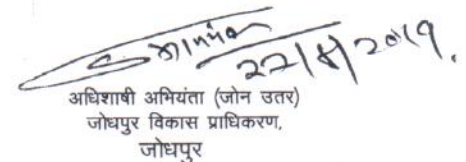 22/8/2019.
अधिशाषी अभियंता (जोन उतर)
जोधपुर विकास प्राधिकरण,
जोधपुर